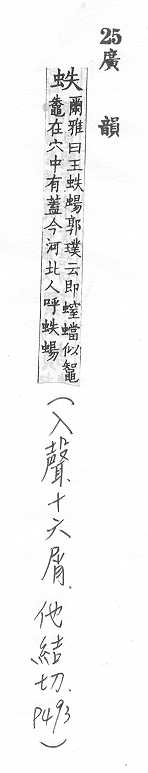 25廣韻
蛈
爾雅曰王蛈蝪郭璞云即螲蟷似鼅
鼄在穴中有蓋今河北人呼蛈蝪
(入聲.十六屑.他結切.P493)